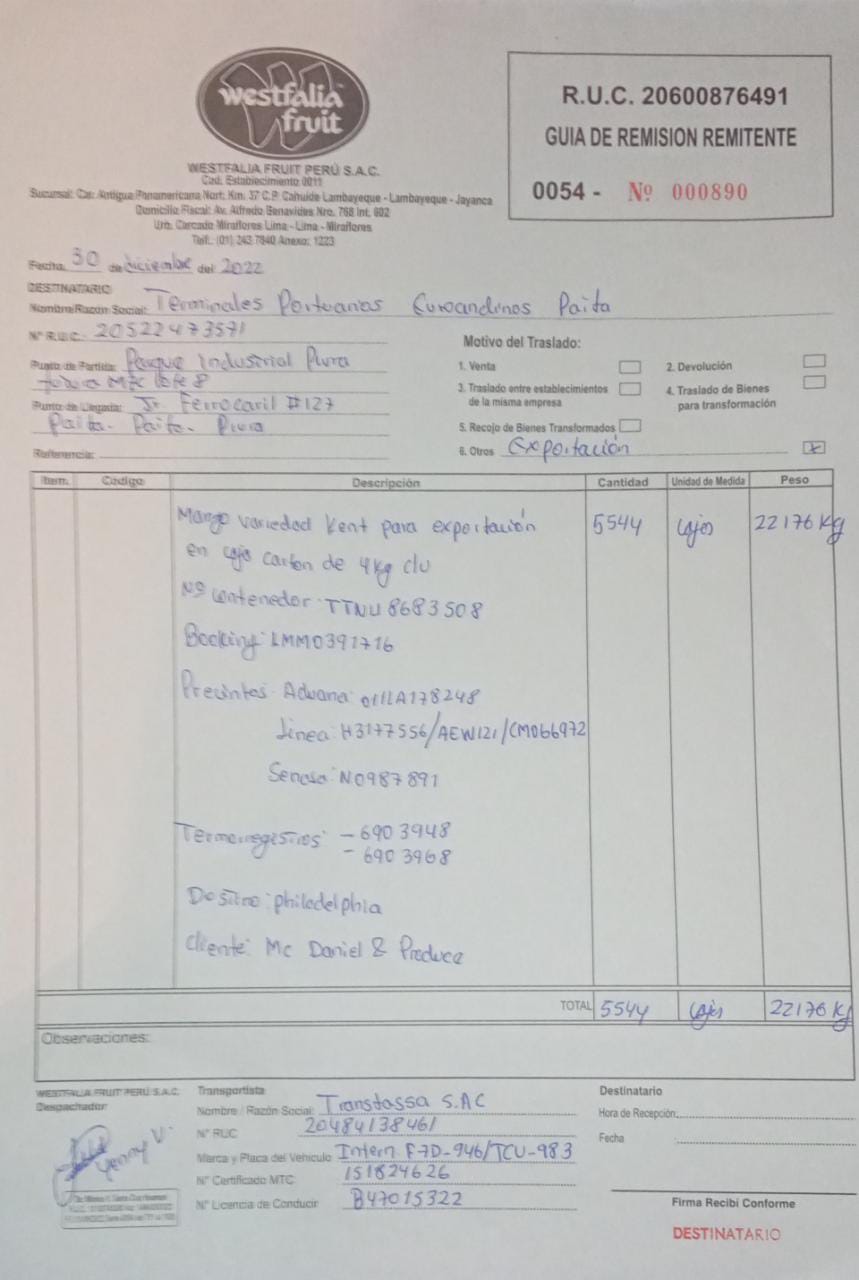 westfalia
fruit
WESTFALIA FRUIT PERÚ S.A.C.
Cod. Establecimiento 0011
Sucursal: Car. Antigua Panamericana Nort. Km. 37 C.P. Cahuide Lambayeque - Lambayeque - Jayanca
Domicilio Fiscal: Av. Alfredo Benavides Nro. 768 Int. 602
Urb. Cercado Miraflores Lima - Lima - Miraflores
Telf.: (01) 243 7840 Anexo: 1223
R.U.C. 20600876491
GUIA DE REMISION REMITENTE
0054 - Nº 000890
Fecha: 30 de diciembre del 2022
DESTINATARIO
Nombre/Razón Social: Terminales Portuarios Euroandinos Paita
Nº R.U.C.: 20522473571
Punto de Partida: Parque Industrial Piura
Futura Mzc lote 8
Punto de Llegada: Jr. Ferrocaril #127
Paita - Paita - Piura
Referencia:
Motivo del Traslado:
1. Venta
2. Devolución
3. Traslado entre establecimientos de la misma empresa
4. Traslado de Bienes para transformación
5. Recojo de Bienes Transformados
6. Otros Exportación x
Item. Código Descripción Cantidad Unidad de Medida Peso
Mango variedad Kent para exportación 5544 cajas 22176 Kg
en caja carton de 4Kg c/u
Nº contenedor: TTNU 8683508
Booking: LMM0391716
Precintos: Aduana: 011LA178248
Linea: H3177556/AEW121/CM066972
Senasa: N0987891
Termoregistros: - 6903948
- 6903968
Destino: philadelphia
Cliente: Mc Daniel & Produce
TOTAL 5544 cajas 22176 Kg
Observaciones:
WESTFALIA FRUIT PERU S.A.C.
Despachador
Yenny V.
Transportista
Nombre / Razón Social: Transtassa S.AC
Nº RUC 20484138461
Marca y Placa del Vehículo Intern F7D-946/TCU-983
Nº Certificado MTC: 151824626
Nº Licencia de Conducir B47015322
Destinatario
Hora de Recepción:
Fecha
Firma Recibí Conforme
DESTINATARIO